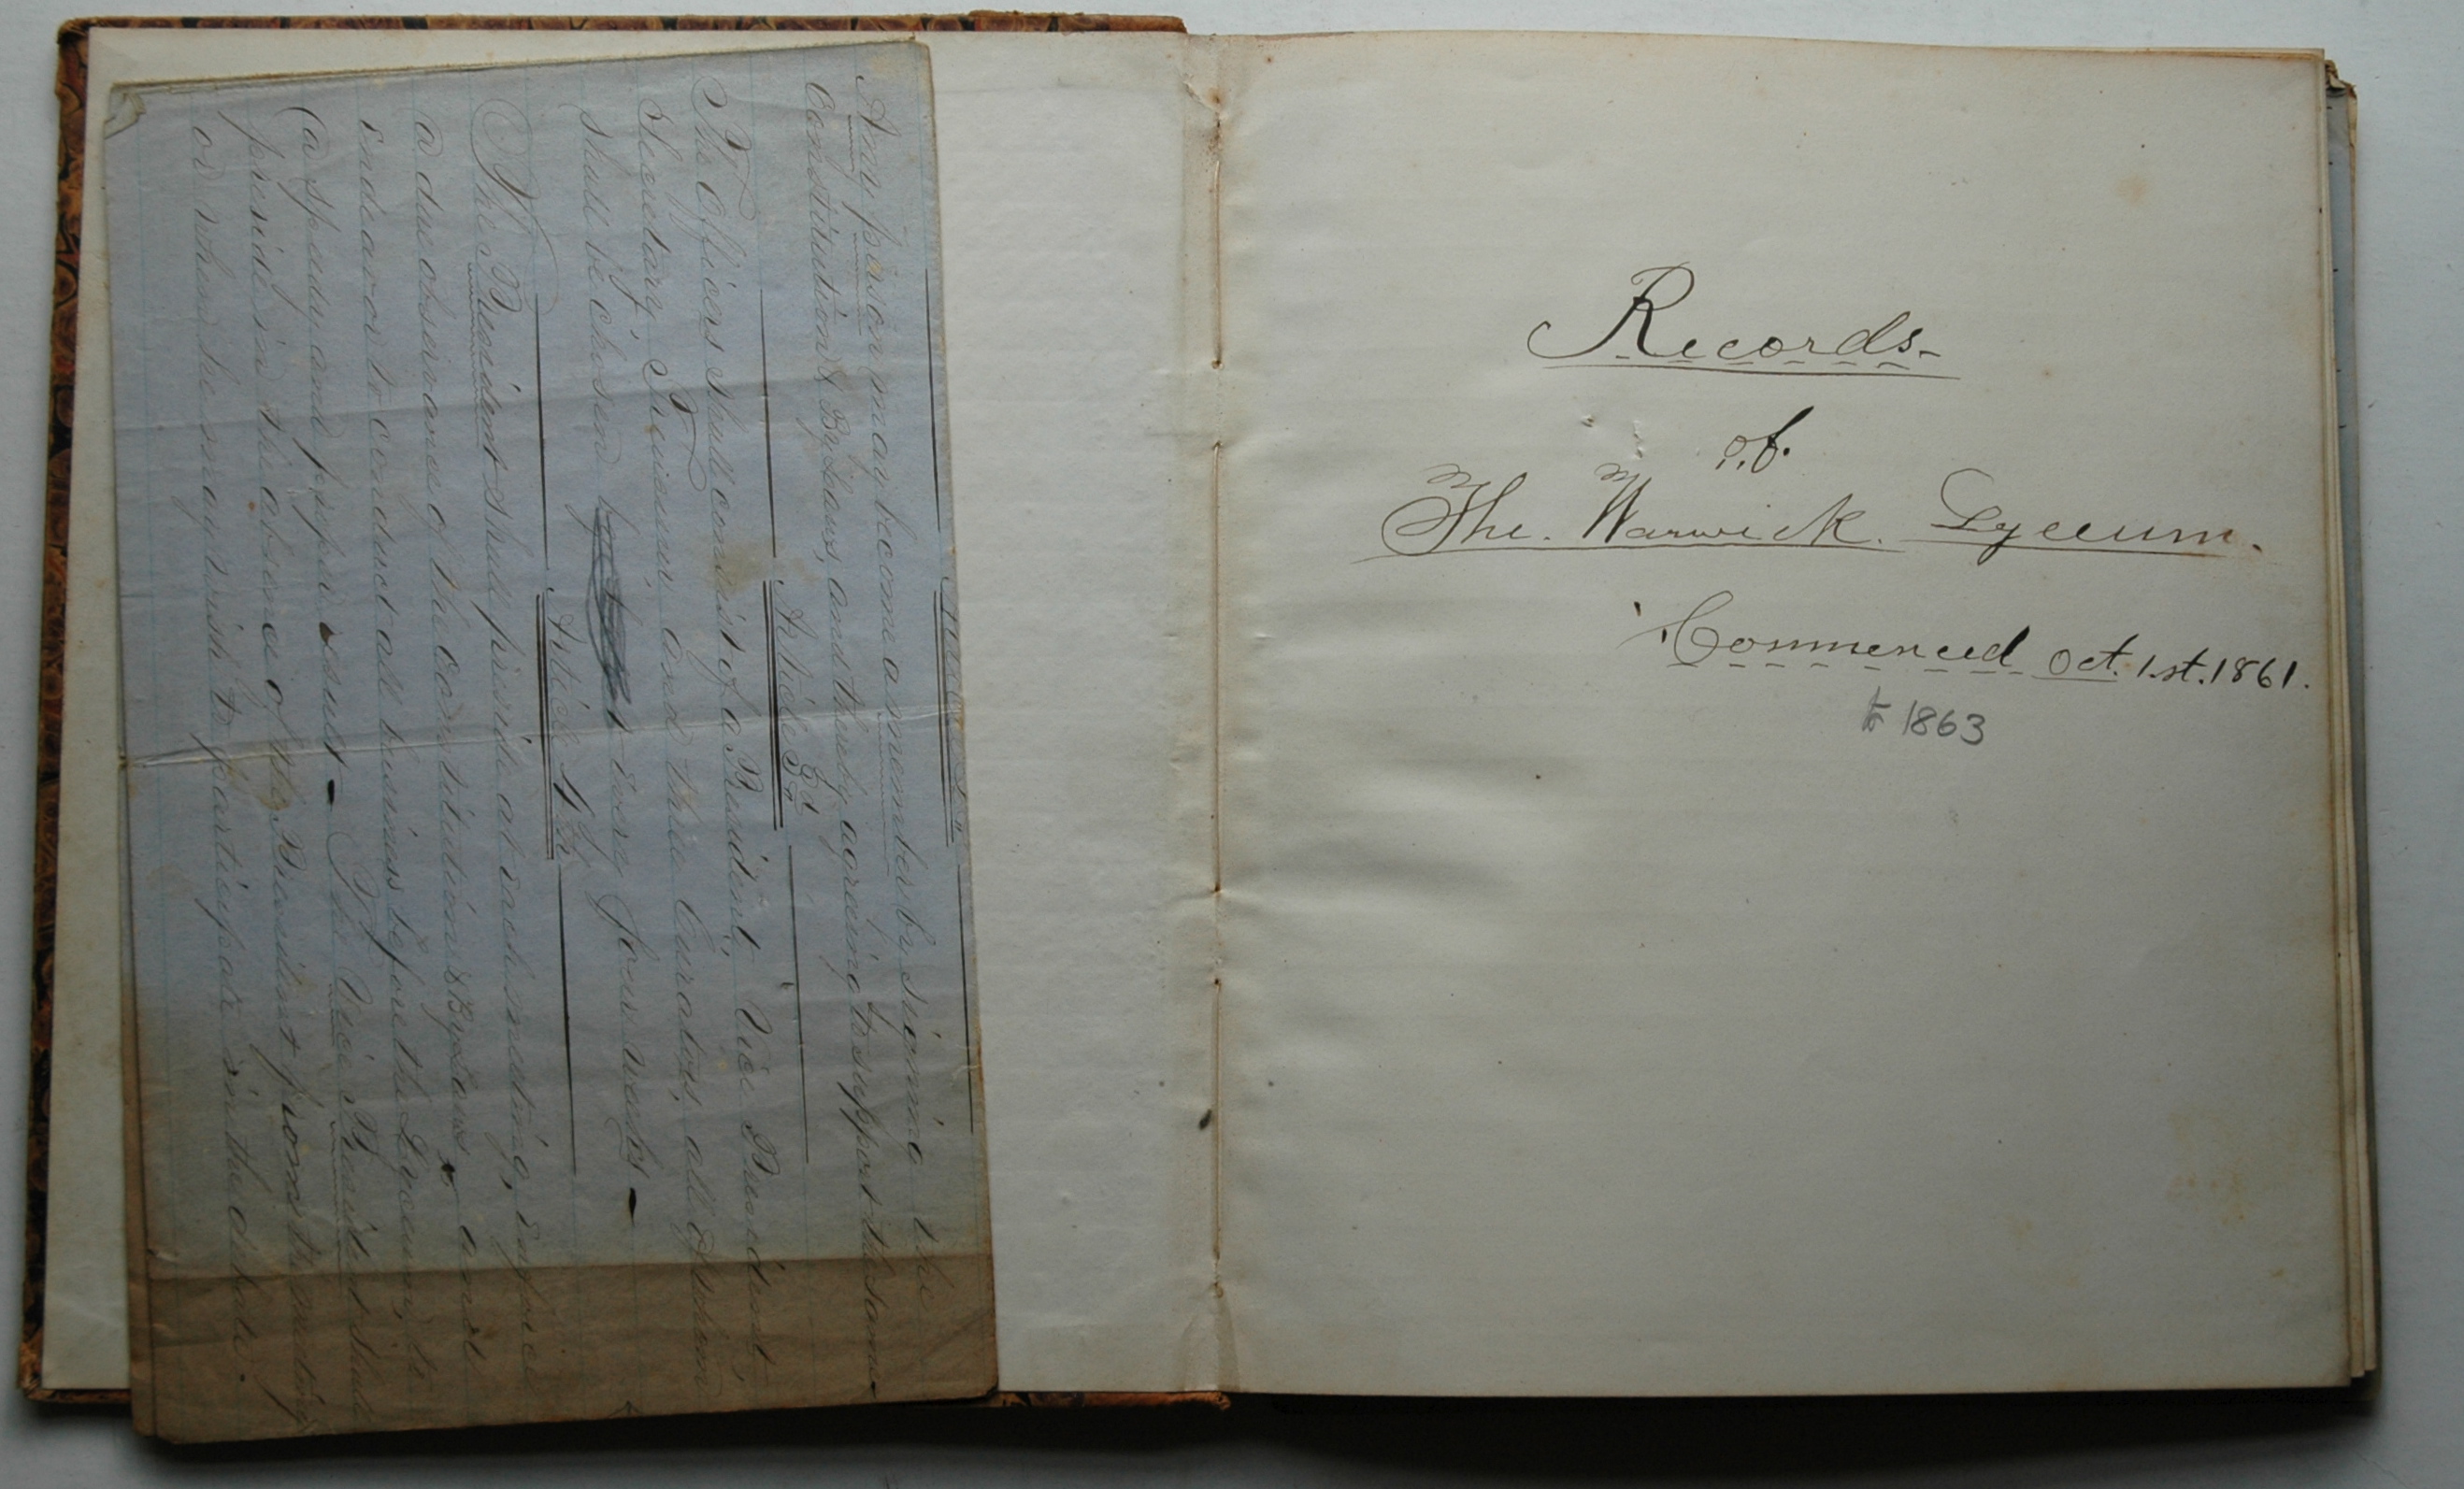 Any person may become a member by signing the
Constitution & ByLaws, and thereby agreeing to support the same
Article 3d
The Officers shall consist of a President, Vice President,
Secretary, Treasurer, and three Curators, all of whom
shall be chosen every four weeks -
Article 4th
The President shall preside at each meeting, enforce
a due observance of the constitution & ByLaws and
endeavor to conduct all business before the Lyceum, to
a speedy and proper result - The Vice President shall
preside in the absence of the President from the meeting
or when he may wish to participate in the debate.
Records
of
The Warwick Lyceum.
Commenced Oct. 1st. 1861.
to 1863